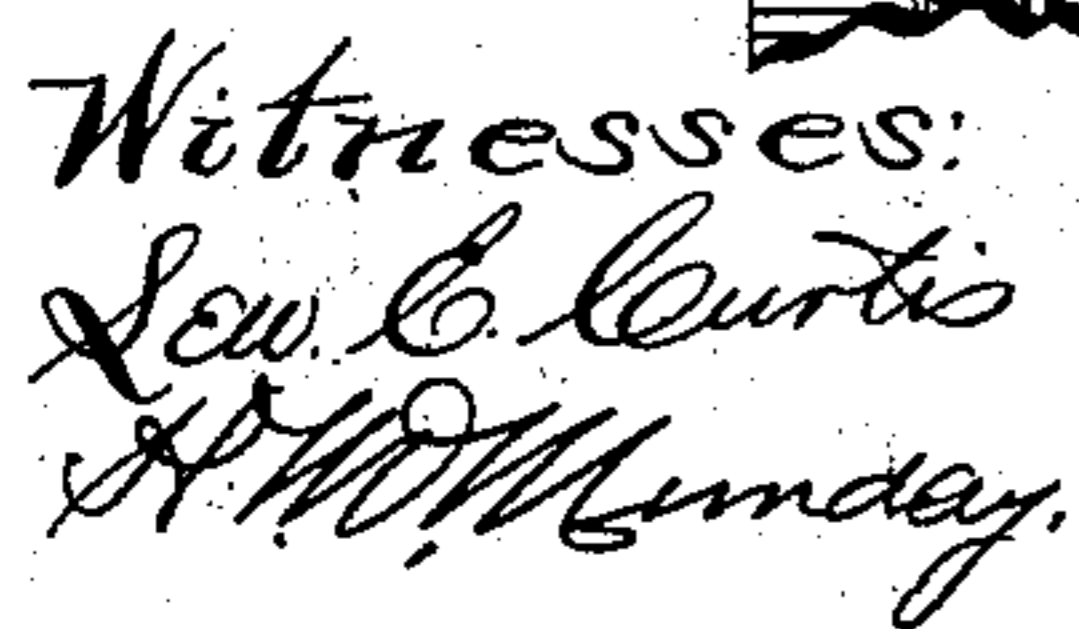 Witnesses:
Lew. E. Curtis
H. W. Munday.